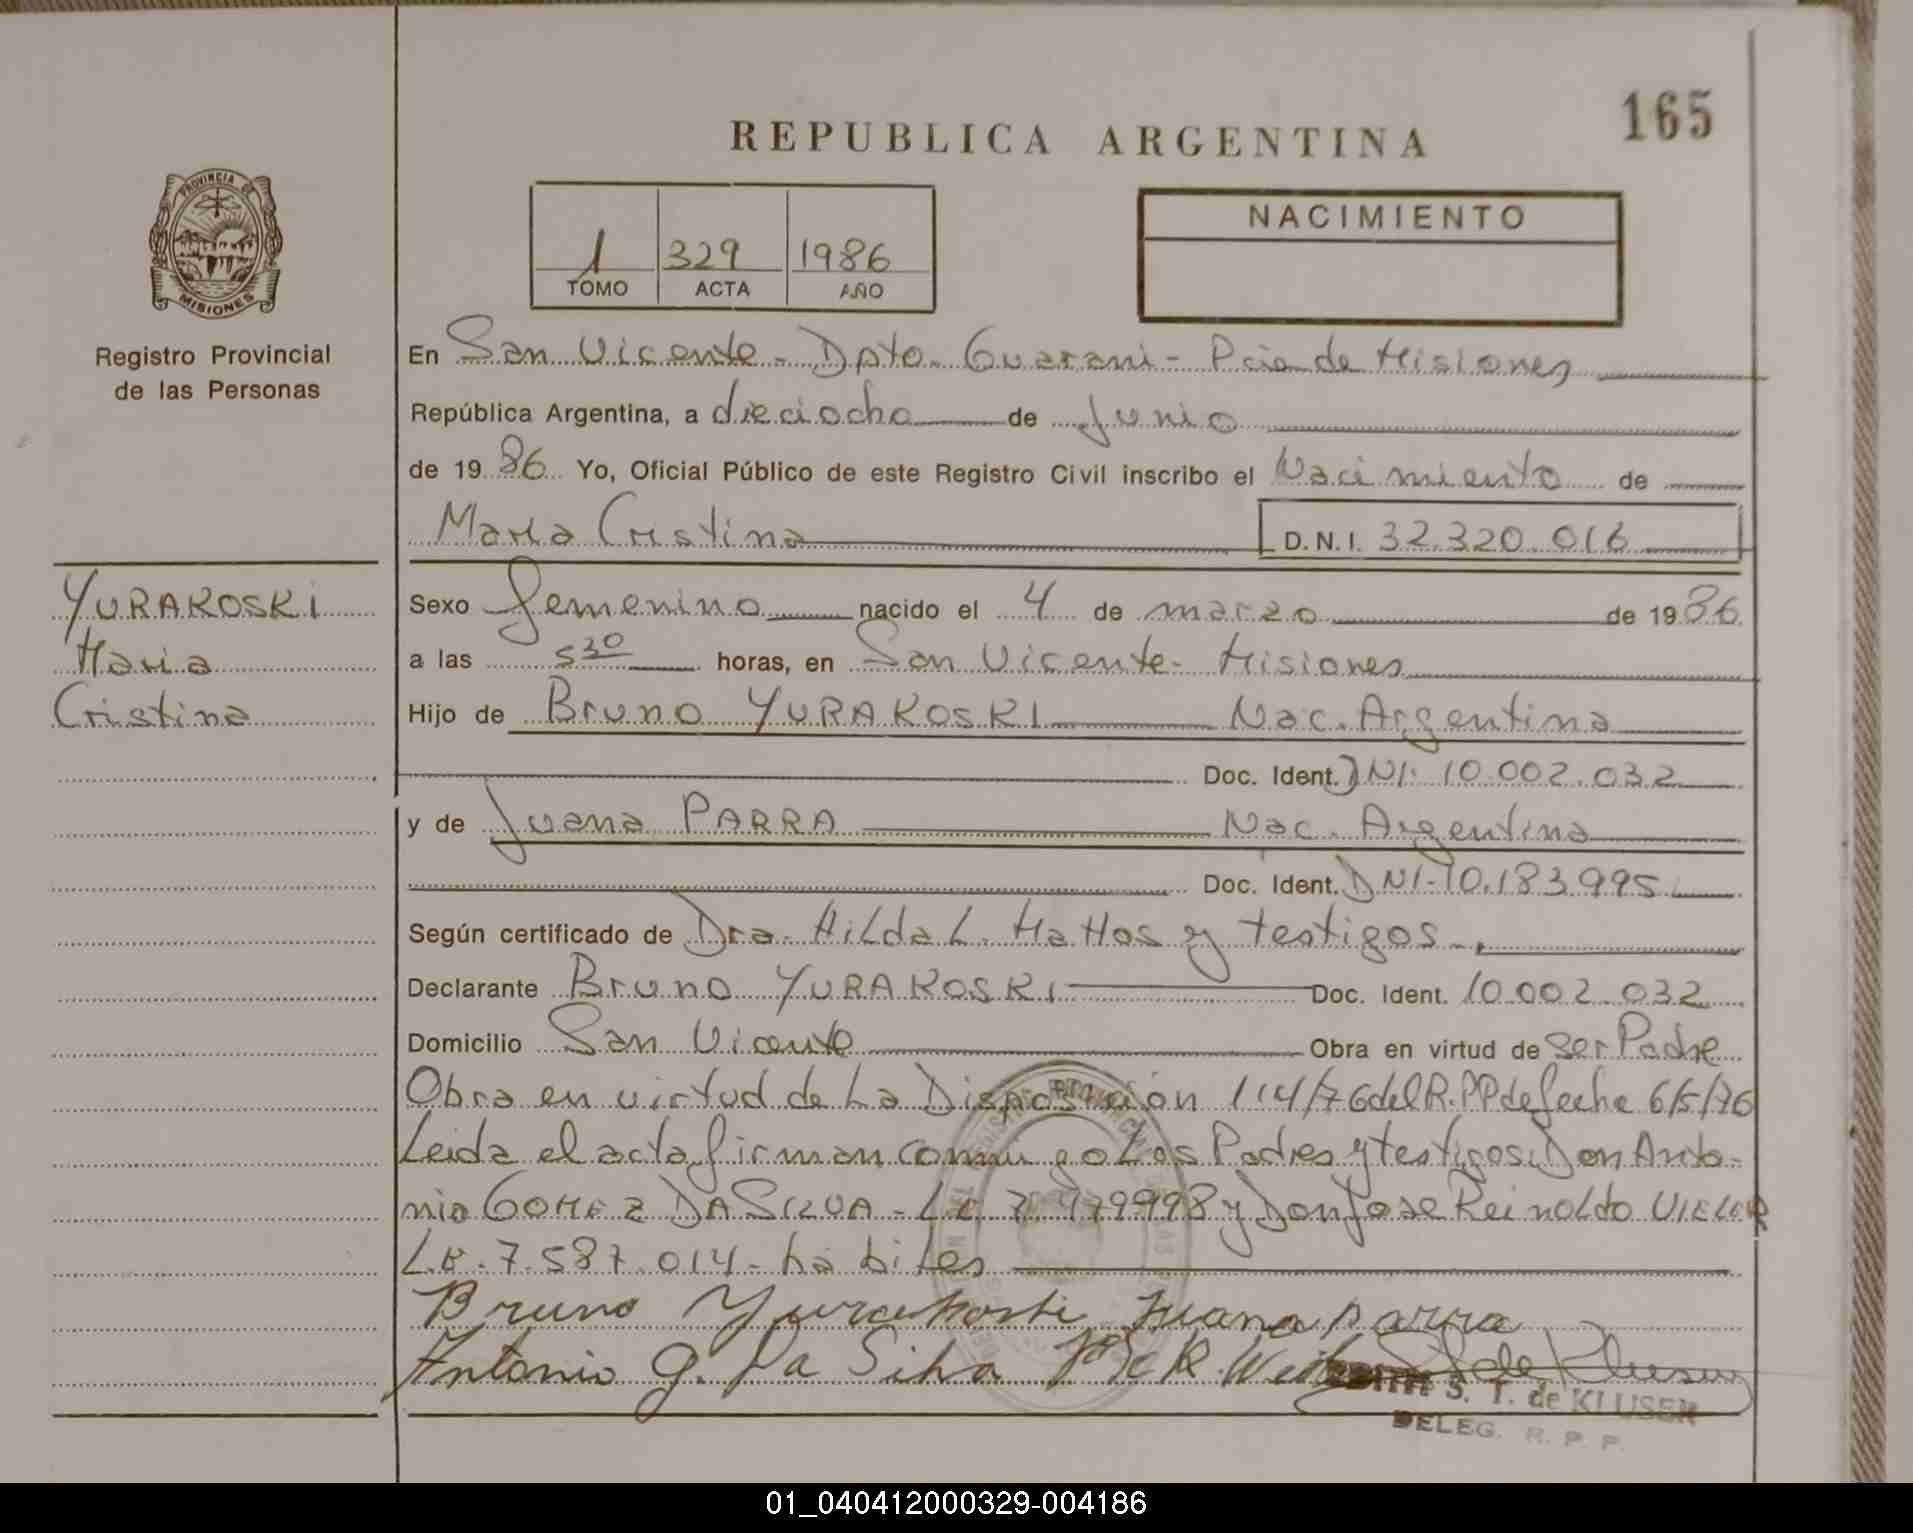 165
REPUBLICA ARGENTINA
PROVINCIA DE
MISIONES
Registro Provincial
de las Personas
1 329 1986
TOMO ACTA AÑO
NACIMIENTO
En San Vicente - Dpto. Guarani - Pcia de Misiones
República Argentina, a dieciocho de Junio
de 1986 Yo, Oficial Público de este Registro Civil inscribo el Nacimiento de
Maria Cristina D.N.I. 32.320.016
YURAKOSKI
Maria
Cristina
Sexo femenino nacido el 4 de marzo de 1986
a las 5 30 horas, en San Vicente - Misiones
Hijo de Bruno YURAKOSKI Nac. Argentina
Doc. Ident. DNI. 10.002.032
y de Juana PARRA Nac. Argentina
Doc. Ident. DNI-10.183.995
Según certificado de Dra. Hilda L. Mattos y testigos.
Declarante Bruno YURAKOSKI Doc. Ident. 10.002.032
Domicilio San Vicente Obra en virtud de ser Padre
Obra en virtud de La Disposición 114/76 del R.PP de fecha 6/5/76
Leida el acta firman conmigo Los Padres y testigos: Don Anto-
nio GOMEZ DA SILVA - 7. 179998 y Don Jose Reinoldo
L.E. 7.587.014 - habiles
Bruno Yurakoski Juana parra
Antonio g. Da Silva José R. S. de Kluser
S. T. de KLUSER
DELEG. R. P. P.
01_040412000329-004186